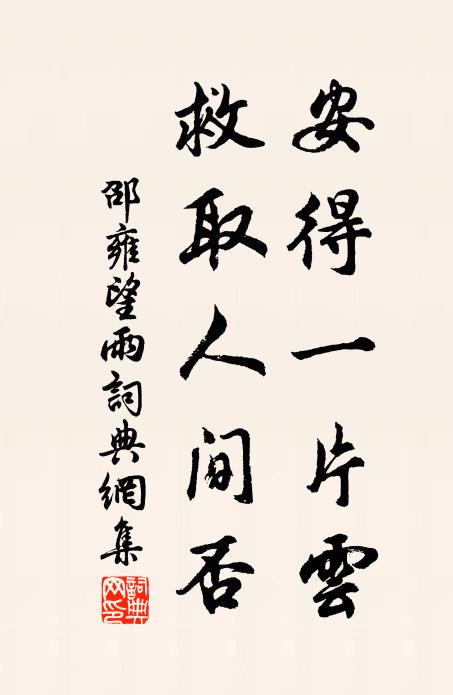 安得一片雲
救取人间否
邵雍望雨詞典網集
詞典网印